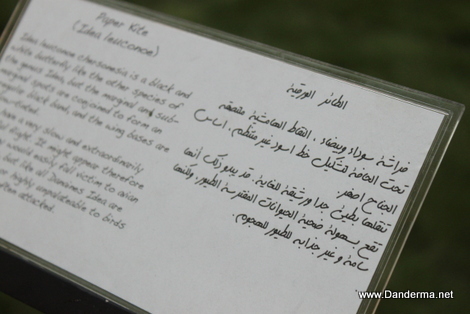 Paper Kite
(Idea leuconoe)
Idea leuconoe chersonesia is a black and
white butterfly like the other species of
the genus Idea, but the marginal and sub-
marginal spots are conjoined to form an
black band, and the wing bases are
a very slow and extraordinarily
flight. It might appear therefore
would easily fall victim to avian
but like all Danaines, Ideas are
highly unpalatable to birds
attacked.
الطائر الورقية
فراشة سوداء وبيضاء. النقاط الهامشية متفقهة
تحت الحافة لتشكيل خط اسود غير منتظم. اساس
الجناح اصفر.
تنقلها بطيئ جدا ورشيقة للغاية. قد يبدو ذلك أنها
تقع بسهولة ضحية الحيوانات المفترسة الطيور، ولكنها
سامة وغير جذابه للطيور للهجوم.
www.Danderma.net